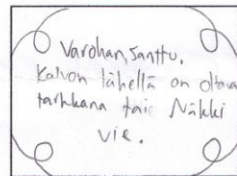 Varohan, Santtu.
Kaivon lähellä on oltava
tarkkana taic Näkki
vie.